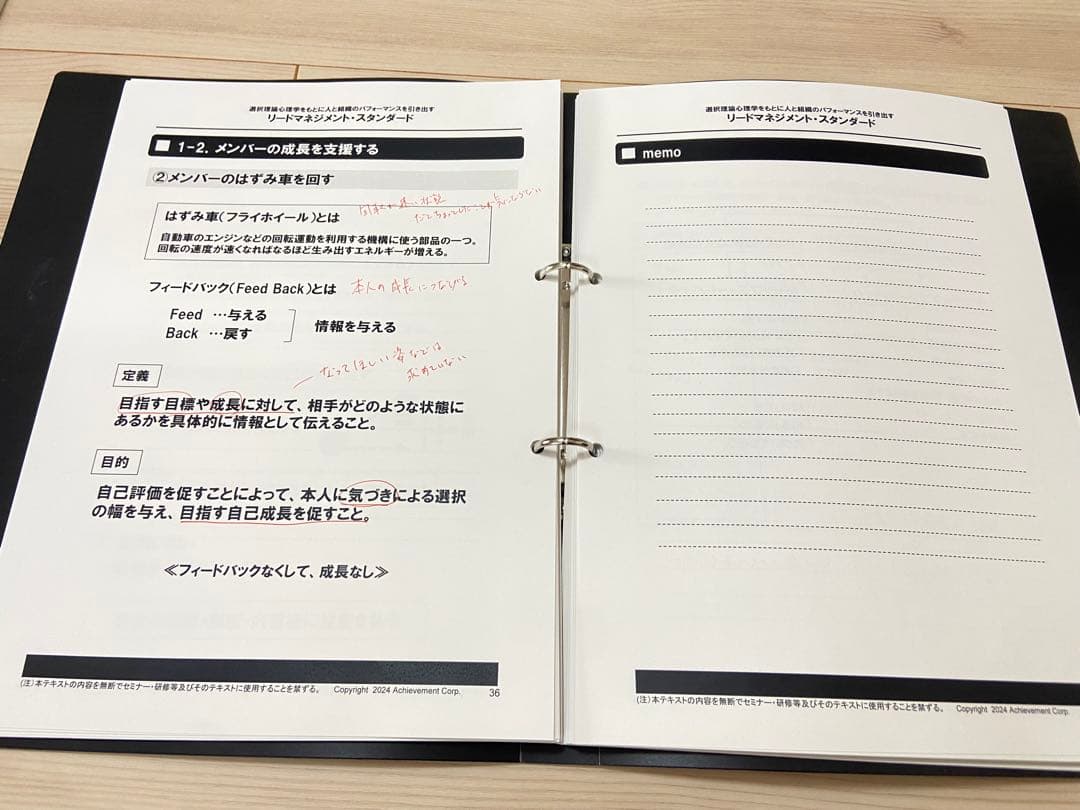 選択理論心理学をもとに人と組織のパフォーマンスを引き出す
リードマネジメント・スタンダード
■ 1-2. メンバーの成長を支援する
②メンバーのはずみ車を回す
はずみ車(フライホイール)とは
自動車のエンジンなどの回転運動を利用する機構に使う部品の一つ。
回転の速度が速くなればなるほど生み出すエネルギーが増える。
フィードバック(Feed Back)とは 本人の成長につなげる
Feed …与える
Back …戻す
情報を与える
なってほしい姿などは
求めていない
定義
目指す目標や成長に対して、相手がどのような状態に
あるかを具体的に情報として伝えること。
目的
自己評価を促すことによって、本人に気づきによる選択
の幅を与え、目指す自己成長を促すこと。
≪フィードバックなくして、成長なし≫
(注)本テキストの内容を無断でセミナー・研修等及びそのテキストに使用することを禁ずる。 Copyright 2024 Achievement Corp.
36
選択理論心理学をもとに人と組織のパフォーマンスを引き出す
リードマネジメント・スタンダード
■ memo
(注)本テキストの内容を無断でセミナー・研修等及びそのテキストに使用することを禁ずる。 Copyright 2024 Achievement Corp.